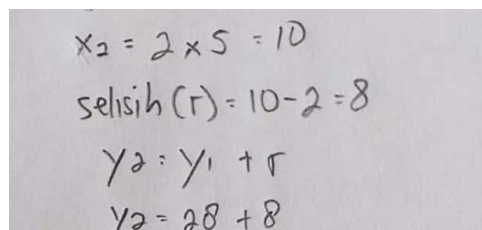 x2 = 2 x 5 = 10
selisih (r) = 10 - 2 = 8
y2 = y1 + r
y2 = 28 + 8